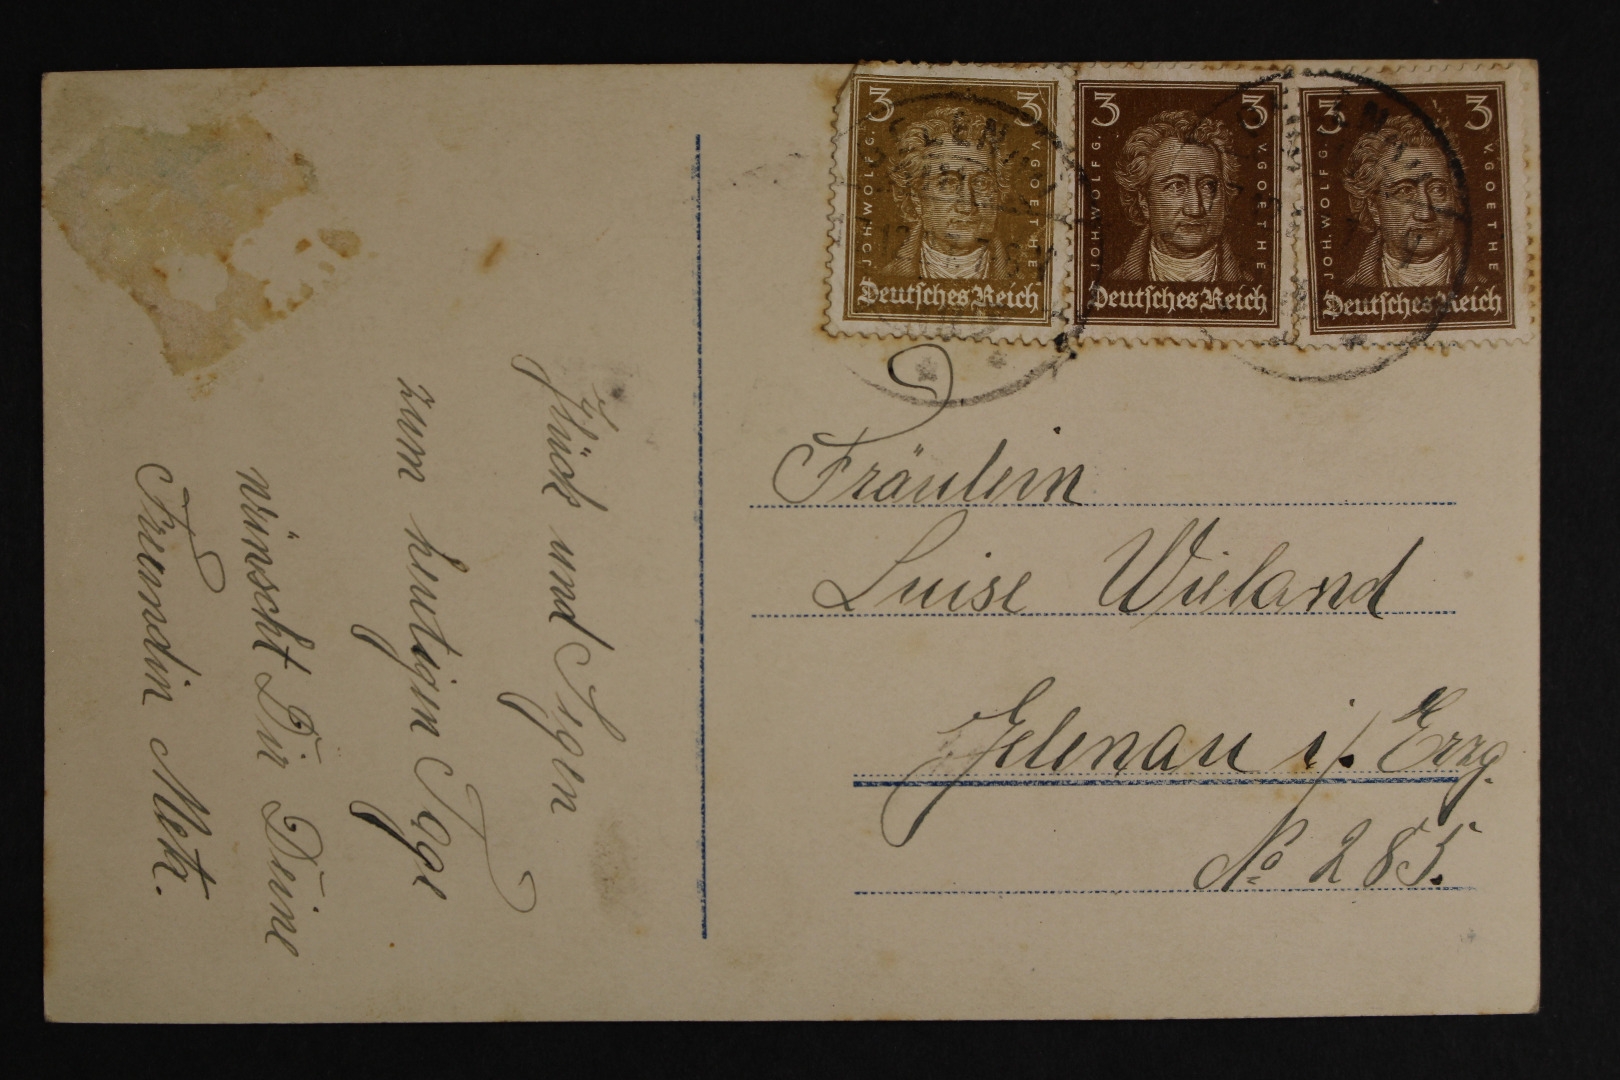 3 3
JOH. WOLFG. V. GOETHE
Deutsches Reich
3 3
JOH. WOLFG. V. GOETHE
Deutsches Reich
3 3
JOH. WOLFG. V. GOETHE
Deutsches Reich
Glück und Segen
zum heutigen Tage
wünscht Dir Deine
Freundin Meta.
Fräulein
Luise Wieland
Gelenau i/. Erzg.
No 285.